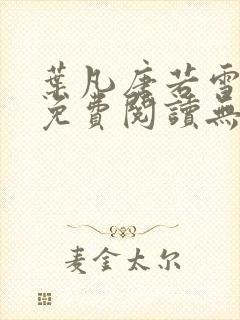 葉凡唐若雪
免費閱讀無
麦金太尔